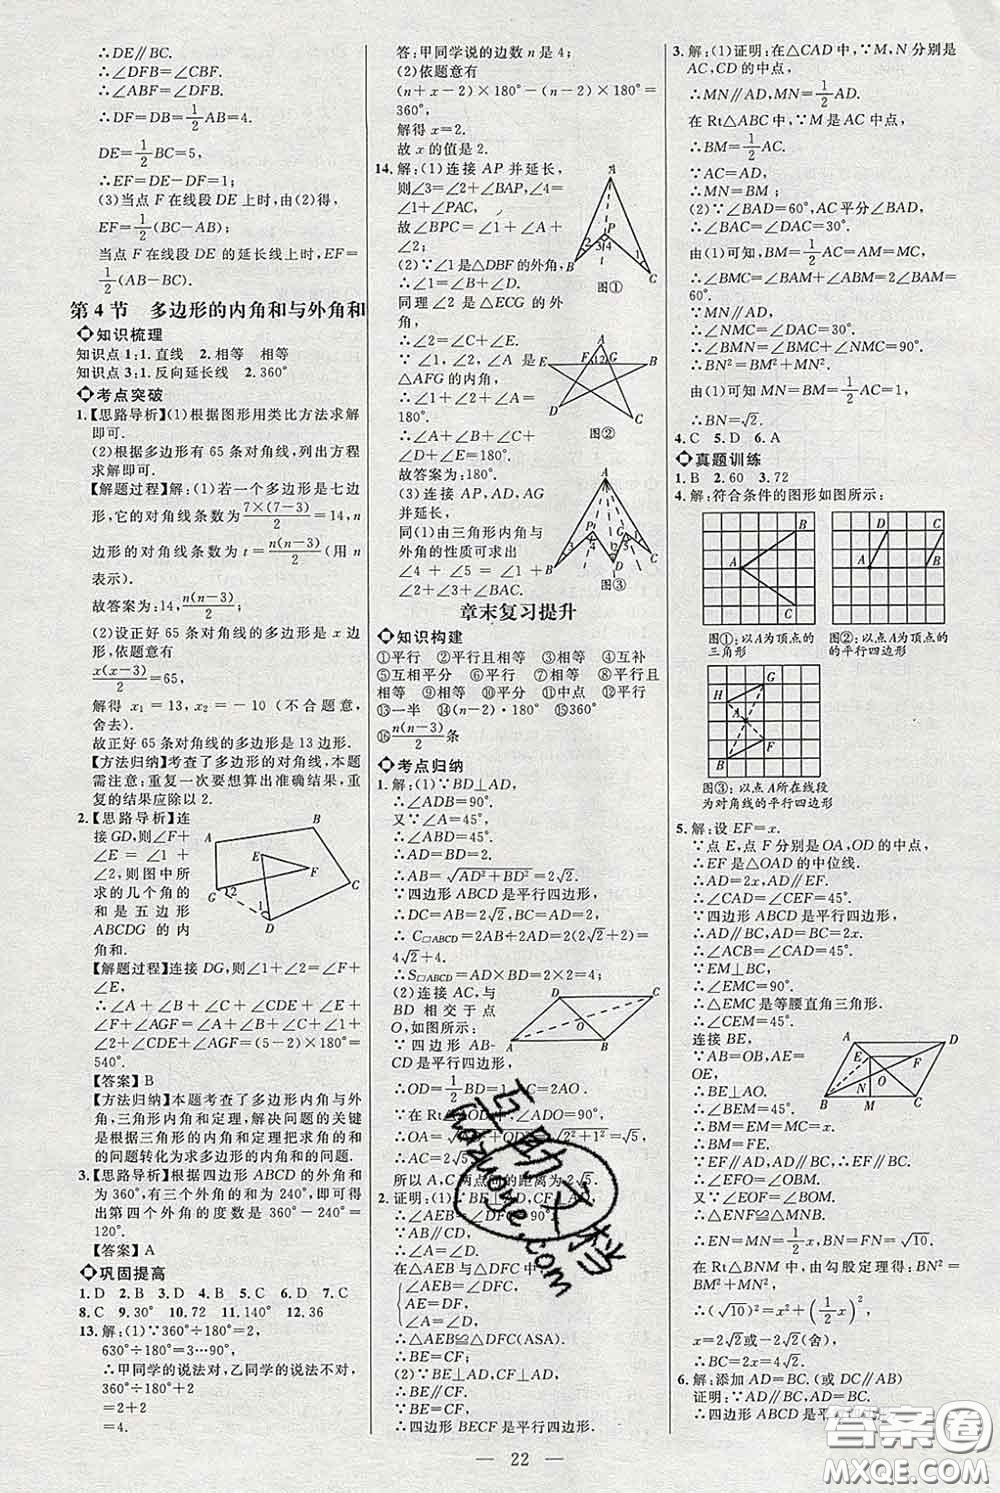 ∴DE∥BC.
∴∠DFB=∠CBF.
∴∠ABF=∠DFB.
∴DF=DB=1/2AB=4.
DE=1/2BC=5,
∴EF=DE-DF=1.
(3)当点 F 在线段 DE 上时,由(2)得,
EF=1/2(BC-AB);
当点 F 在线段 DE 的延长线上时,EF=
1/2(AB-BC).
第 4 节 多边形的内角和与外角和
知识梳理
知识点 1:1. 直线 2. 相等 相等
知识点 3:1. 反向延长线 2. 360°
考点突破
1.【思路导析】(1)根据图形用类比方法求解
即可.
(2)根据多边形有 65 条对角线,列出方程
求解即可.
【解题过程】解:(1)若一个多边形是七边
形,它的对角线条数为7×(7-3)/2=14,n
边形的对角线条数为 t=n(n-3)/2(用 n
表示).
故答案为:14,n(n-3)/2.
(2)设正好 65 条对角线的多边形是 x 边
形,依题意有
x(x-3)/2=65,
解得 x₁=13,x₂=-10(不合题意,
舍去).
故正好 65 条对角线的多边形是 13 边形.
【方法归纳】考查了多边形的对角线,本题
需注意:重复一次要想得出准确结果,重
复的结果应除以 2.
2.【思路导析】连
接 GD,则∠F+
∠E=∠1+
∠2,则图中所
求的几个角的
和是五边形
ABCDG 的内
角和.
A B C D E F G 1 2
【解题过程】连接 DG,则∠1+∠2=∠F+
∠E,
∴∠A+∠B+∠C+∠CDE+∠E+
∠F+∠AGF=∠A+∠B+∠C+∠1+
∠2+∠CDE+∠AGF=(5-2)×180°=
540°.
【答案】B
【方法归纳】本题考查了多边形内角与外
角,三角形内角和定理,解决问题的关键
是根据三角形的内角和定理把求角的和
的问题转化为求多边形的内角和的问题.
3.【思路导析】根据四边形 ABCD 的外角和
为 360°,有三个外角的和为 240°,即可得
出第四个外角的度数是 360°-240°=
120°.
【答案】A
巩固提高
1. D 2. D 3. D 4. B 5. C 6. D 7. C
8. C 9. 30° 10. 72 11. 140° 12. 36
13. 解:(1)∵360°÷180°=2,
630°÷180°=3…90°,
∴甲同学的说法对,乙同学的说法不对,
360°÷180°+2
=2+2
=4.
答:甲同学说的边数 n 是 4;
(2)依题意有
(n+x-2)×180°-(n-2)×180°=
360°,
解得 x=2.
故 x 的值是 2.
14. 解:(1)连接 AP 并延长,
则∠3=∠2+∠BAP,∠4=
∠1+∠PAC,
故∠BPC=∠1+∠2+
∠BAC;
(2)∵∠1 是△DBF 的外角,
∴∠1=∠B+∠D.
同理∠2 是△ECG 的外
角,
∴∠2=∠C+∠E.
∵∠1、∠2、∠A 是
△AFG 的内角,
∴∠1+∠2+∠A=
180°.
∴∠A+∠B+
∠C+∠D+∠E=180°.
故答案为:180°.
(3)连接 AP、AD、AG
并延长,
同(1)由三角形内角与
外角的性质可求出
∠4+∠5=∠1+
∠2+∠3+∠BAC.
A P 2 3 4 1 B C
图①
A E F 1 2 G B D C
图②
A P G 4 5 3 1 2 B D C
图③
章末复习提升
知识构建
①平行 ②平行且相等 ③相等 ④互补
⑤互相平分 ⑥平行 ⑦平行 ⑧平行且
相等 ⑨相等 ⑩平分 ⑪中点 ⑫平行
⑬一半 ⑭(n-2)·180° ⑮360°
⑯n(n-3)/2条
考点归纳
1. 解:(1)∵BD⊥AD,
∴∠ADB=90°.
又∵∠A=45°,
∴∠ABD=45°.
∴AD=BD=2.
∴AB=√(AD²+BD²)=2√2.
∵四边形 ABCD 是平行四边形,
∴DC=AB=2√2,AD=BC=2.
∴C▱ABCD=2AB+2AD=2(2√2+2)=
4√2+4.
∴S▱ABCD=AD×BD=2×2=4;
(2)连接 AC,与
BD 相交于点
O,如图所示:
∵四边形 AB-
CD 是平行四边形,
D C O A B
∴OD=1/2BD=1,AC=2AO.
∵在 Rt△AOD 中,∠ADO=90°,
∴OA=√(AD²+OD²)=√(2²+1²)=√5.
∴AC=2√5.
所以 A、C 两点间的距离为 2√5.
2. 证明:(1)∵BE⊥AD,CF⊥AD,
∴∠AEB=∠DFC=90°.
∵AB∥CD,
∴∠A=∠D.
在△AEB 与△DFC 中,
∠AEB=∠DFC,
AE=DF,
∠A=∠D,
∴△AEB≌△DFC(ASA).
∴BE=CF;
(2)∵BE⊥AD,CF⊥AD,
∴BE∥CF.
∵BE=CF,
∴四边形 BECF 是平行四边形.
3. 解:(1)证明:在△CAD 中,∵M、N 分别是
AC、CD 的中点,
∴MN∥AD,MN=1/2AD.
在 Rt△ABC 中,∵M 是 AC 中点,
∴BM=1/2AC.
∵AC=AD,
∴MN=BM;
(2)∵∠BAD=60°,AC 平分∠BAD,
∴∠BAC=∠DAC=30°.
由(1)可知,BM=1/2AC=AM=MC,
∴∠BMC=∠BAM+∠ABM=2∠BAM=60°.
∵MN∥AD,
∴∠NMC=∠DAC=30°.
∴∠BMN=∠BMC+∠NMC=90°.
∴BN²=BM²+MN².
由(1)可知 MN=BM=1/2AC=1,
∴BN=√2.
4. C 5. D 6. A
真题训练
1. B 2. 60 3. 72
4. 解:符合条件的图形如图所示:
A B C
图①:以 A 为顶点的
三角形
D C A B
图②:以 A 为顶点
的平行四边形
G H A F B
图③:以点 A 所在线段
为对角线的平行四边形
5. 解:设 EF=x.
∵点 E、点 F 分别是 OA、OD 的中点,
∴EF 是△OAD 的中位线.
∴AD=2x,AD∥EF.
∴∠CAD=∠CEF=45°.
∵四边形 ABCD 是平行四边形,
∴AD∥BC,AD=BC=2x.
∴∠ACB=∠CAD=45°.
∵EM⊥BC,
∴∠EMC=90°.
∴△EMC 是等腰直角三角形.
∴∠CEM=45°.
连接 BE,
∵AB=OB,AE=
OE,
∴BE⊥AO.
∴∠BEM=45°.
∴BM=EM=MC=x.
∴BM=FE.
∵EF∥AD,AD∥BC,∴EF∥BC.
∴∠EFO=∠MBN.
∵∠EOF=∠BOM,
∴△ENF≌△MNB.
A D E F O N B M C
∴EN=MN=1/2x,BN=FN=√10.
在 Rt△BNM 中,由勾股定理得:BN²=
BM²+MN²,
∴(√10)²=x²+(1/2x)²,
x=2√2或-2√2(舍),
∴BC=4√2.
6. 解:添加 AD=BC.(或 DC∥AB)
证明:∵AD=BC,AB=CD,
∴四边形 ABCD 是平行四边形.
— 22 —
互助文档
hdzuoye.com
答案圈
MXQE.COM